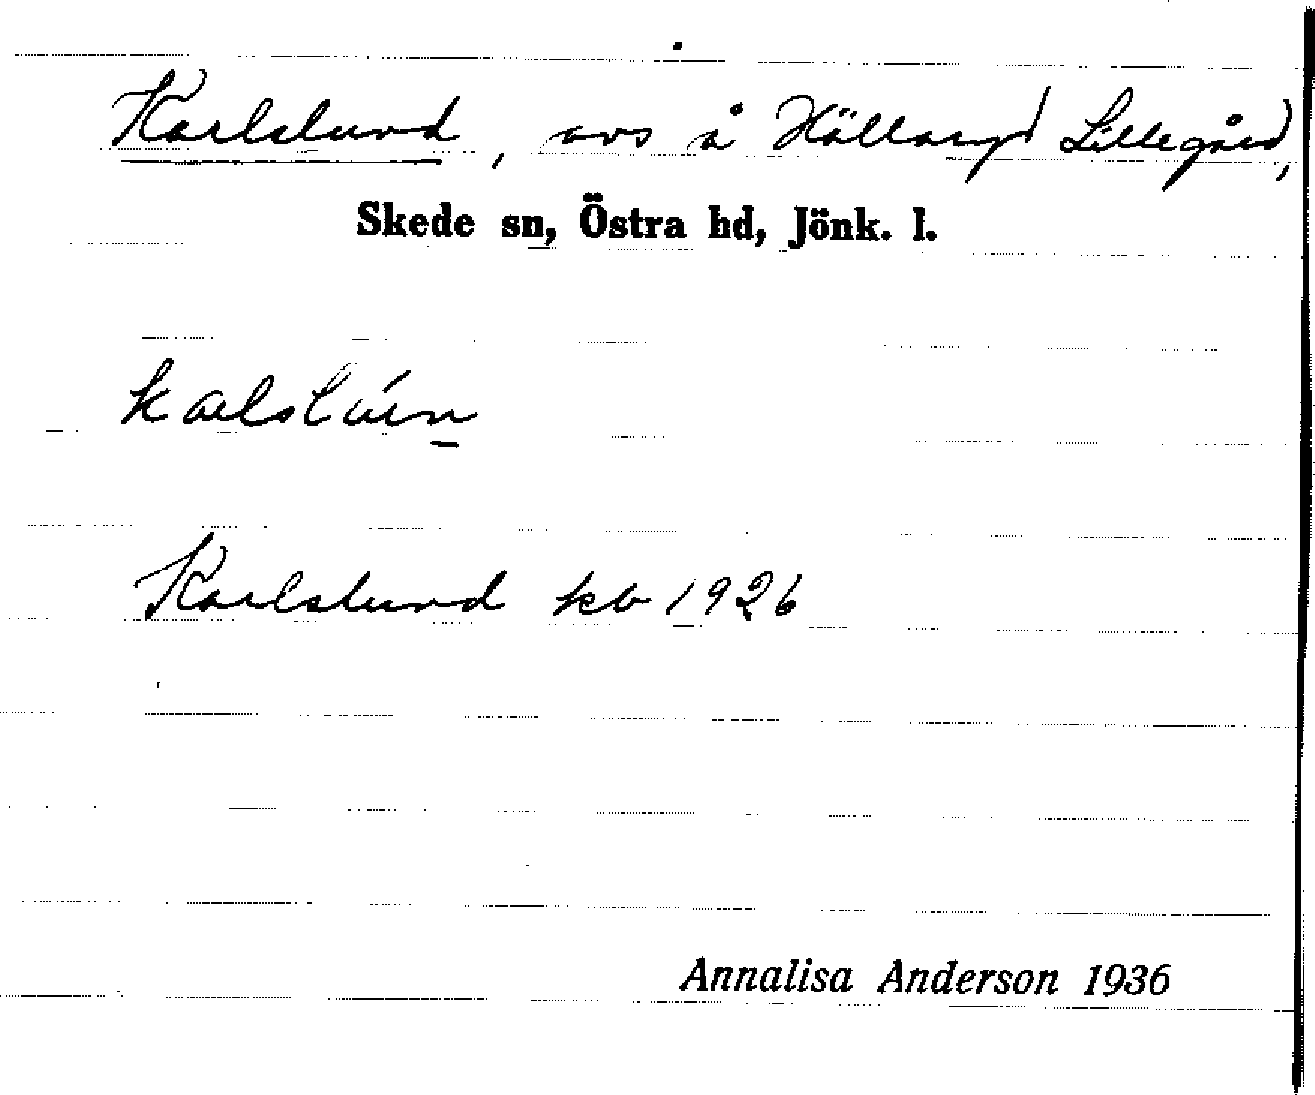 Karlslund, avs å Hällaryd Lillegård,
Skede sn, Östra hd, Jönk. l.
Karlslund kb 1926
Annalisa Anderson 1936